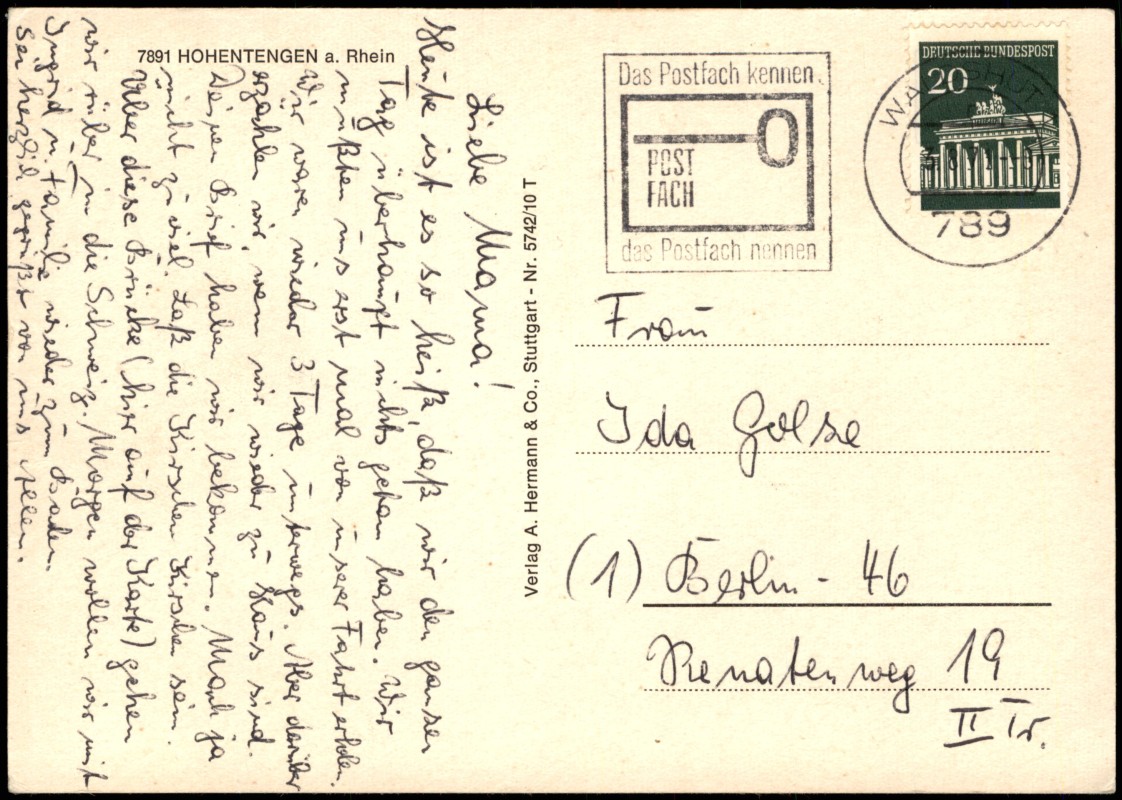 7891 HOHENTENGEN a. Rhein
Liebe Mama!
Heute ist es so heiß, daß wir den ganzen
Tag überhaupt nichts getan haben. Wir
mußten uns erst mal von unserer Fahrt erholen.
Wir waren wieder 3 Tage unterwegs. Aber darüber
erzählen wir, wenn wir wieder zu Haus sind.
Deinen Brief haben wir bekommen. Mach ja
nicht zu viel. Laß die Kirschen Kirschen sein.
Über diese Brücke (hier auf der Karte) gehen
wir rüber in die Schweiz. Morgen wollen wir mit
Ingrid u. Familie wieder zum Baden.
Sei herzlich gegrüßt von uns allen.
Verlag A. Hermann & Co., Stuttgart - Nr. 5742/10 T
Das Postfach kennen
POST
FACH
das Postfach nennen
DEUTSCHE BUNDESPOST
20
WALDSHUT
789
Frau
Ida Golse
(1) Berlin - 46
Renatenweg 19
II Tr.